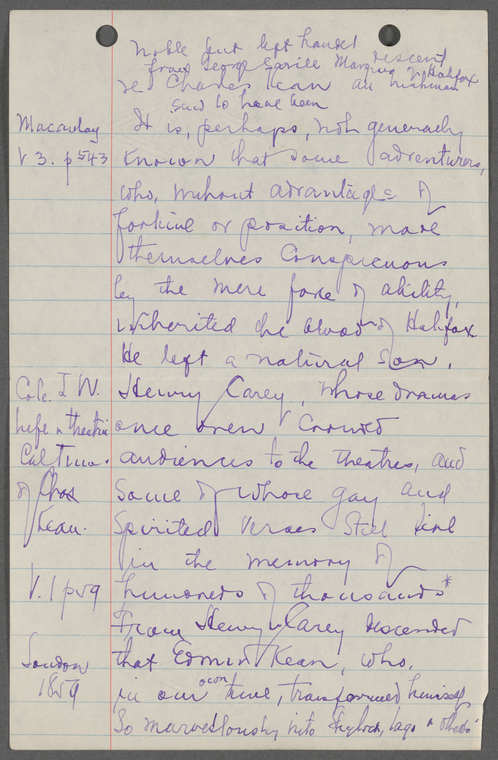 Noble but left handed descent
from George Savile Marquis of Halifax
of Charles Kean an Irishman
said to have been
Macaulay
V 3. p 543
It is, perhaps, not generally
known that some adventurers,
who, without advantages of
fortune or position, made
themselves conspicuous
by the mere force of ability,
inherited the blood of Halifax
He left a natural son,
Cole. J W.
Life & theatrical
Times.
of Chas
Kean.
V. 1 p 59
London
1859
Henry Carey, whose dramas
once drew crowded
audiences to the theatres, and
some of whose gay and
spirited verses still live
in the memory of
hundreds of thousands*
From Henry Carey descended
that Edmund Kean, who,
in our own time, transformed himself
so marvellously into Shylock, Iago & Othello"